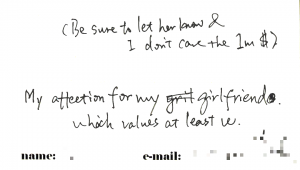 (Be sure to let her know &
I don't care the 1m $)
My affection for my girlfriend.
which values at least
name:
e-mail: